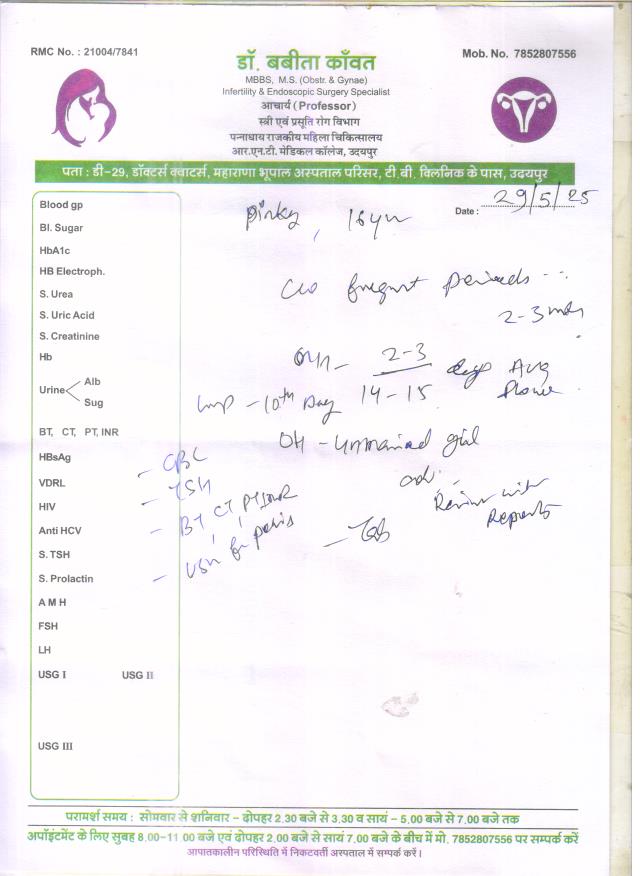 RMC No. : 21004/7841
Mob. No. 7852807556
डॉ. बबीता काँवत
MBBS, M.S. (Obstr. & Gynae)
Infertility & Endoscopic Surgery Specialist
आचार्य (Professor)
स्त्री एवं प्रसूति रोग विभाग
पन्नाधाय राजकीय महिला चिकित्सालय
आर.एन.टी. मेडिकल कॉलेज, उदयपुर
पता : डी-29, डॉक्टर्स क्वाटर्स, महाराणा भूपाल अस्पताल परिसर, टी.बी. क्लिनिक के पास, उदयपुर
Date : 29/5/25
Pinky, 18 yrs
Blood gp
Bl. Sugar
HbA1c
HB Electroph.
S. Urea
S. Uric Acid
S. Creatinine
Hb
Urine Alb
Sug
BT, CT, PT, INR
HBsAg
VDRL
HIV
Anti HCV
S. TSH
S. Prolactin
A M H
FSH
LH
USG I USG II
USG III
C/o frequent periods ...
2-3
2-3 days Avg
14-15
LMP - 10th Day
OH - Unmarried girl
Adv.
Review with
Reports
- CBC
- TSH
- BT, CT, PT INR
- USG for pelvis
परामर्श समय : सोमवार से शनिवार - दोपहर 2.30 बजे से 3.30 व सायं - 5.00 बजे से 7.00 बजे तक
अपॉइंटमेंट के लिए सुबह 8.00-11.00 बजे एवं दोपहर 2.00 बजे से सायं 7.00 बजे के बीच में मो. 7852807556 पर सम्पर्क करें
आपातकालीन परिस्थिति में निकटवर्ती अस्पताल में सम्पर्क करें।